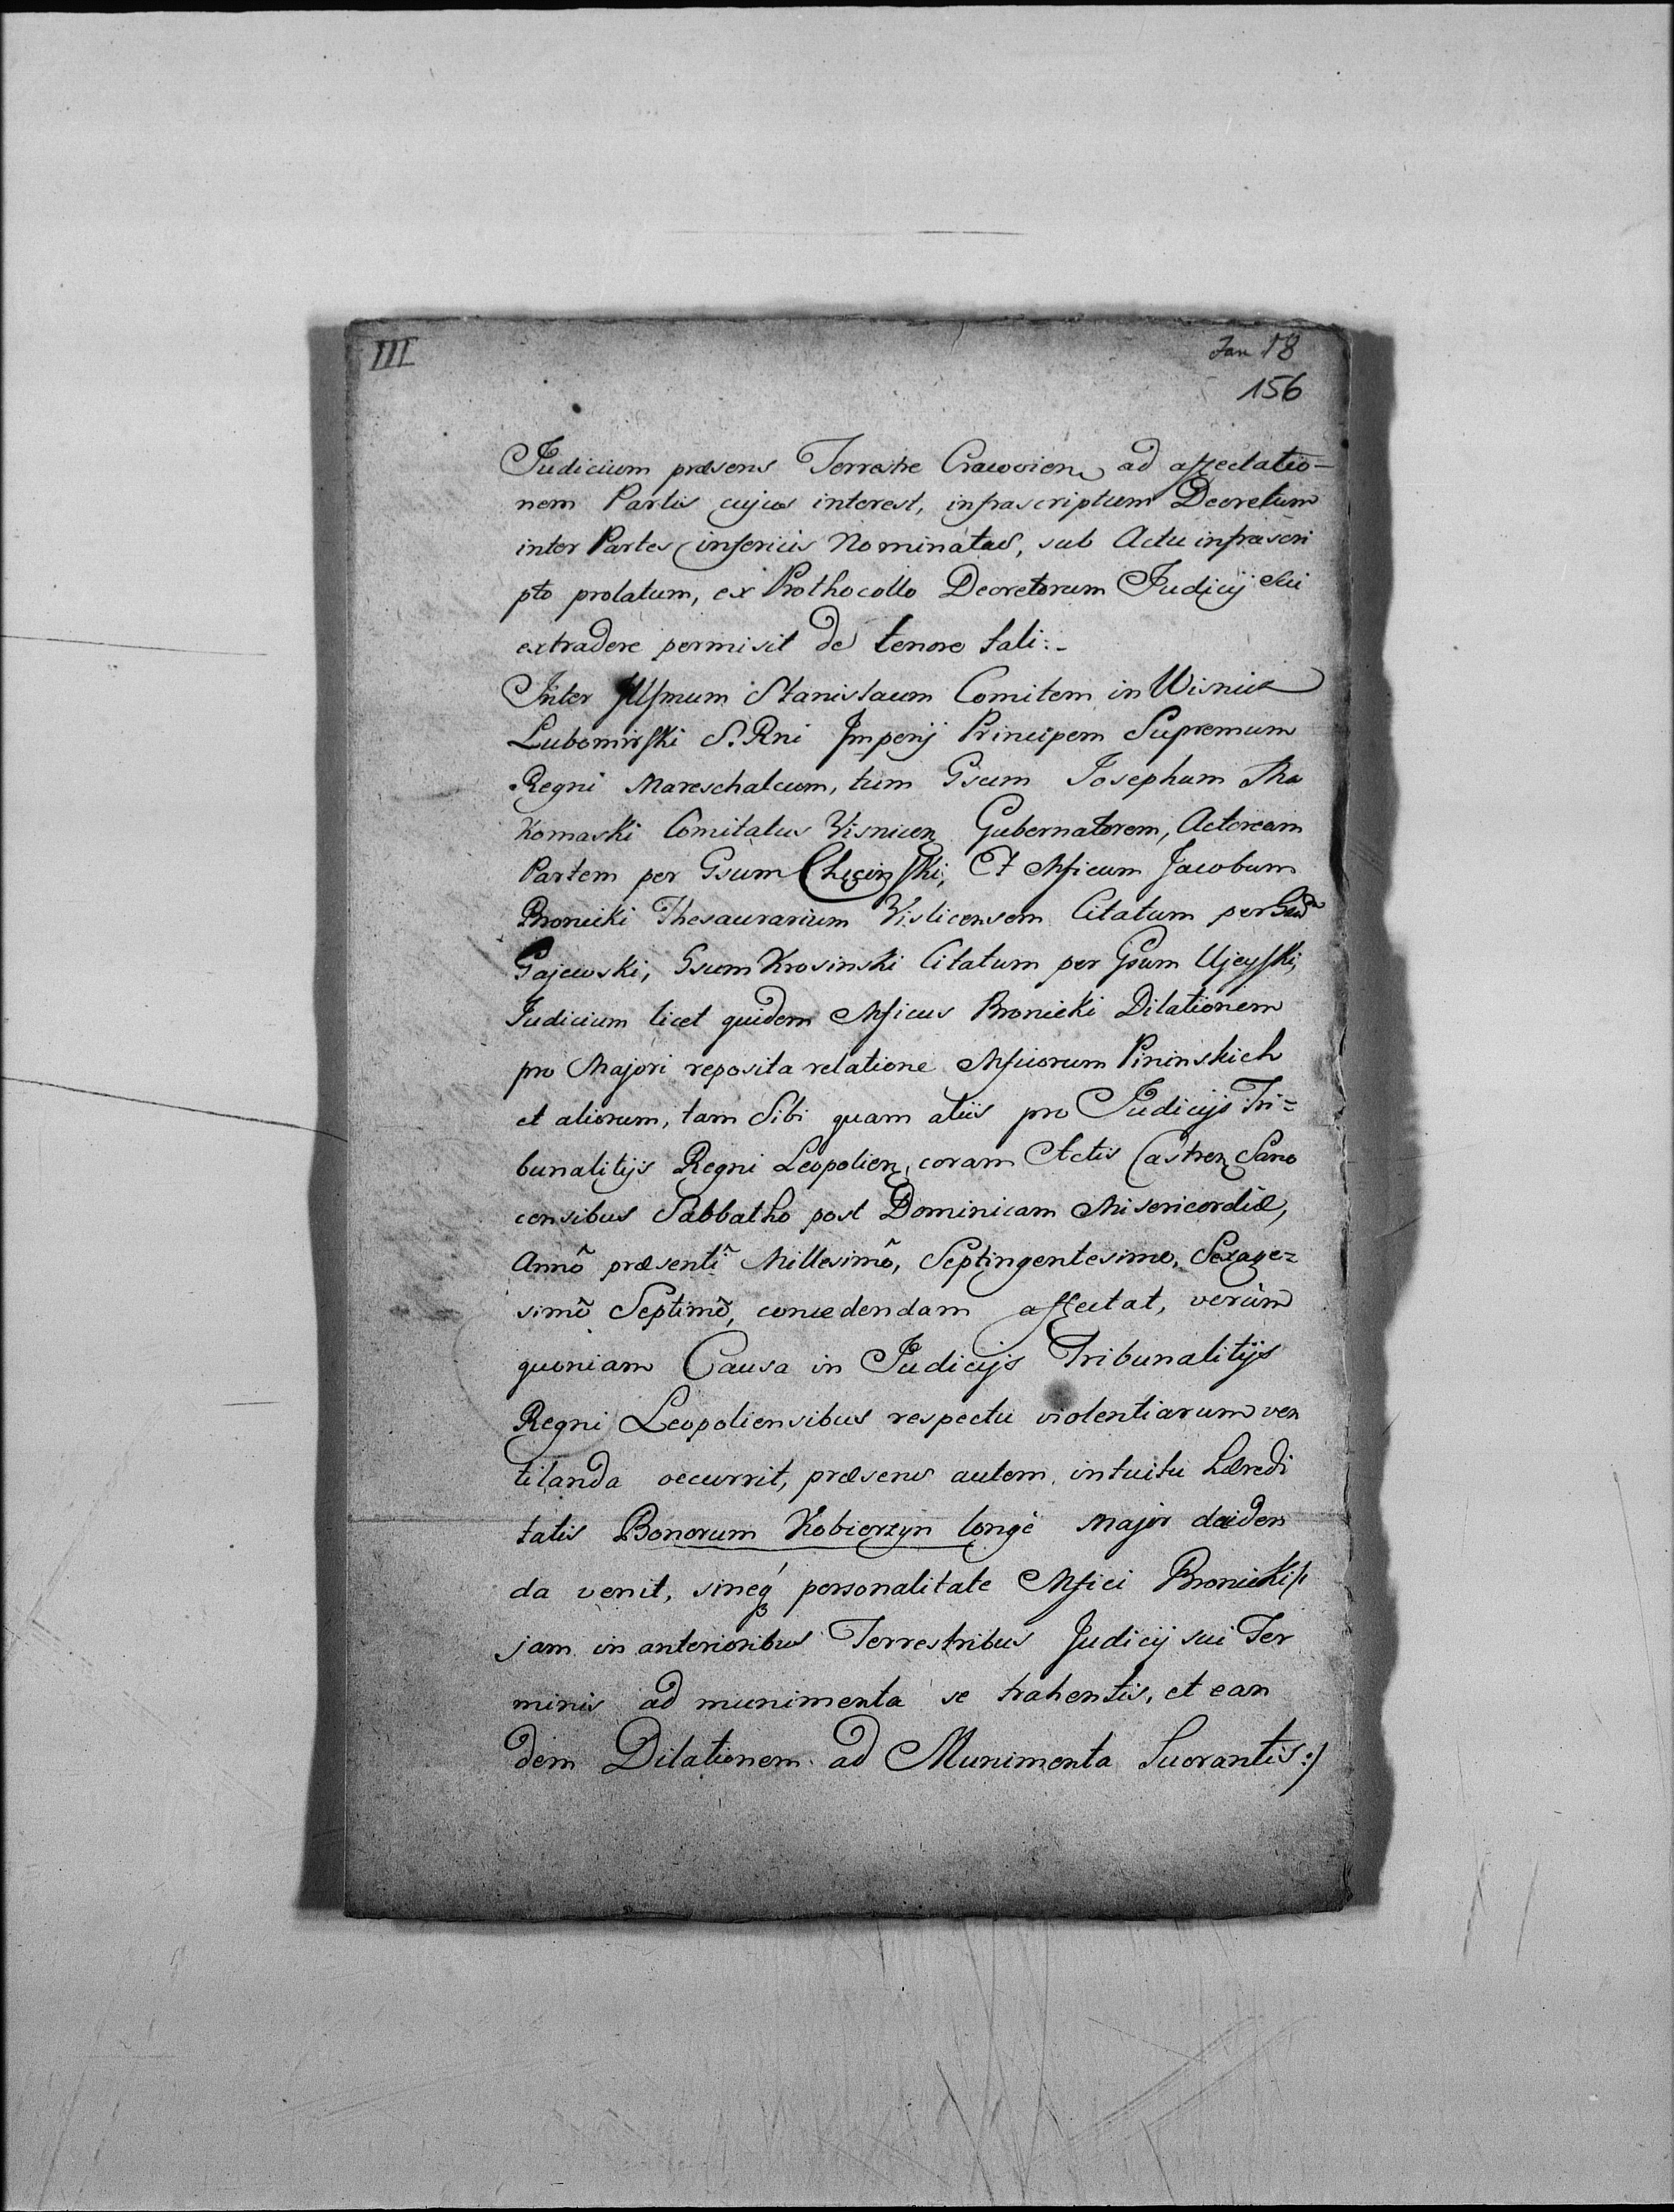 III
Jan 18
156
Judicium præsens Terrestre Cracovien, ad affectatio-
nem Partis cujus interest, infrascriptum Decretum
inter Partes inferius Nominatas, sub Actu infrascri
pto prolatum, ex Prothocollo Decretorum Judicij Sui
extradere permisit de tenore tali:-
Inter Illmum Stanislaum Comitem in Wisnicz
Lubomirski S. Rni Imperij Principem Supremum
Regni Mareschalcum, tum Gsum Josephum
Comitatus Visnicen Gubernatorem, Actoream
Partem per Gsum Chęcinski, Et Mficum Jacobum
Bronicki Thesaurarium Vislicensem Citatum per
Gajewski, Gsum Krosinski Citatum per Gsum Ujeyski,
Judicium licet quidem Mficus Bronicki Dilationem
pro Majori reposita relatione Mficorum Pininskich
et aliorum, tam Sibi quam aliis pro Judicijs Tri=
bunalitijs Regni Leopolien, coram Actis Castren Sano
censibus Sabbatho post Dominicam Misericordiæ,
Annô præsentî Millesimô, Septingentesimo, Sexage=
simô Septimô, concedendam affectat, verùm
quoniam Causa in Judicijs Tribunalitijs
Regni Leopoliensibus respectu violentiarum ven
tilanda occurrit, præsens autem intuitu hæredi
tatis Bonorum Kobierzyn longè Major deciden
da venit, sineq personalitate Mfici Bronicki /:
jam in anterioribus Terrestribus Judicij sui Ter
minis ad munimenta se trahentis, et ean
dem Dilationem ad Munimenta Lucrantis :/